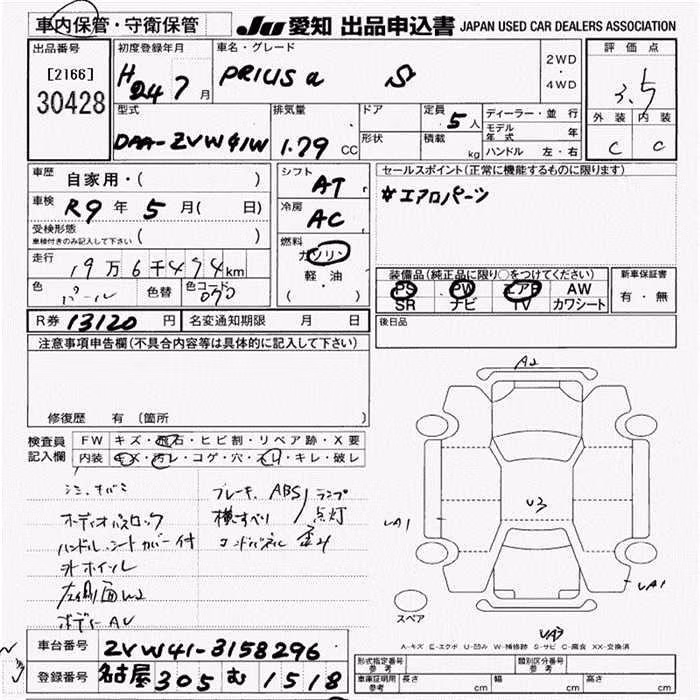 車内保管・守衛保管
JU 愛知 出品申込書 JAPAN USED CAR DEALERS ASSOCIATION
出品番号
[2166]
30428
初度登録年月
H24 7月
車名・グレード
PRIUS α S
2WD
・
4WD
評価点
3.5
外装 内装
C C
型式
DAA-ZVW41W
排気量
1.79 CC
ドア
形状
定員 5人
積載 kg
ディーラー・並行
モデル年式 年
ハンドル 左・右
車歴 自家用・( )
車検 R9年 5月( 日)
受検形態
車検付きのみ記入して下さい ( )
走行 19万6千474km
色 パール 色替 色コード 070
シフト AT
冷房 AC
燃料
ガソリン
軽・油
( )
セールスポイント(正常に機能するものに限ります)
#エアロパーツ
装備品(純正品に限り○をつけてください)
PS PW エアB AW
SR ナビ TV カワシート
新車保証書
有・無
R券 13120円 名変通知期限 月 日
後日品
注意事項申告欄(不具合内容等は具体的に記入して下さい)
修復歴 有 (箇所 )
検査員
記入欄
FW キズ・飛石・ヒビ割・リペア跡・X要
内装 キズ・汚レ・コゲ・穴・スレ・キレ・破レ
ブレーキ、ABSランプ
横すべり 点灯
オーディオパスロック
ハンドル、シートカバー付
コンドパネル 歪み
外ホイール
左側面W2
ボディーAU
A2
U3
UA1
UA1
UA3
スペア
A-キズ E-エクボ U-凹み W-補修跡 S-サビ C-腐食 XX-交換済
車台番号 ZVW41-3158296
登録番号 名古屋 305 む 1518
形式指定番号
参考
類別区分番号
参考
車庫証明用
参考
長さ cm 幅 cm 高さ cm